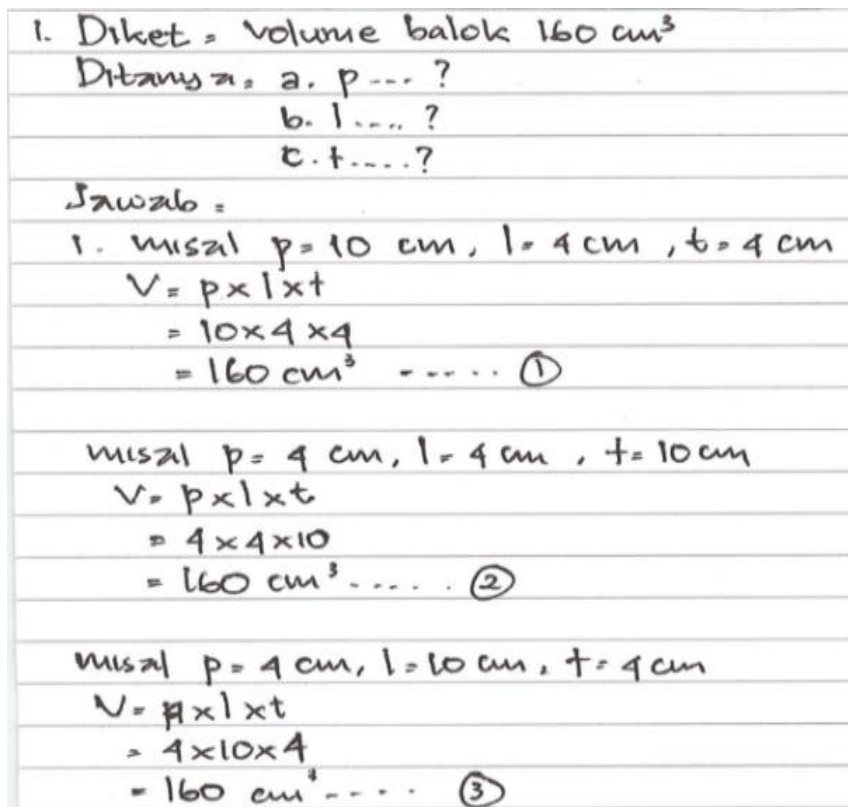 1. Diket = Volume balok 160 cm³
Ditanya = a. p .... ?
b. l ..... ?
c. t ..... ?
Jawab =
1. misal p = 10 cm, l = 4 cm, t = 4 cm
V = p x l x t
= 10 x 4 x 4
= 160 cm³ ..... ①
misal p = 4 cm, l = 4 cm, t = 10 cm
V = p x l x t
= 4 x 4 x 10
= 160 cm³ ..... ②
misal p = 4 cm, l = 10 cm, t = 4 cm
V = p x l x t
= 4 x 10 x 4
= 160 cm³ ..... ③